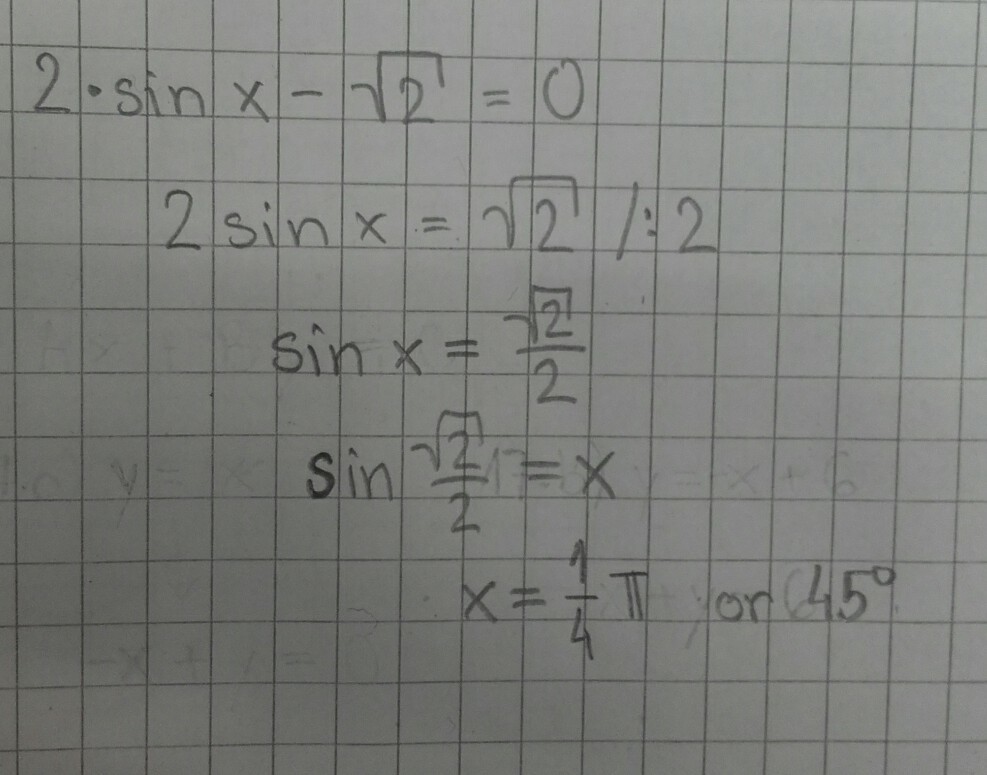 2·sin x - √2 = 0
2 sin x = √2 /:2
sin x = √2/2
sin √2/2 = x
x = 1/4 π or 45°